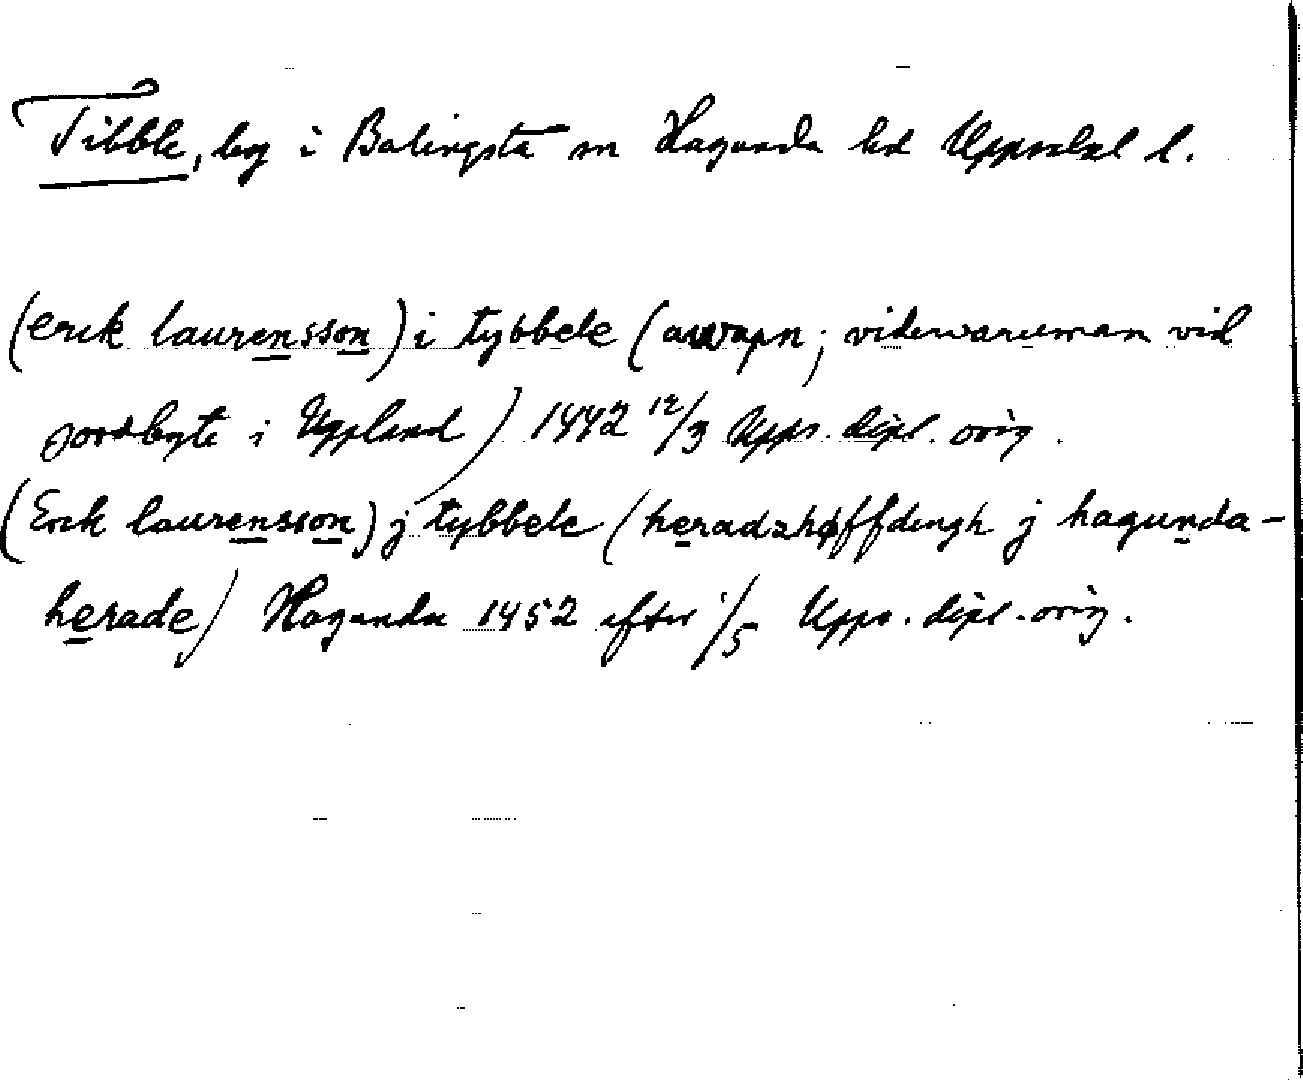 Tibble, by i Balingsta sn Hagunda hd Uppsala l.
(erik laurensson) i tybbele (awapn; vidervaruman vid
jordbyte i Uppland) 1442 12/3 Upps. dipl. orig.
(Erik laurensson) j tybbele (heradzhøffdingh j hagunda-
herade) Hagunda 1452 efter 1/5 Upps. dipl. orig.